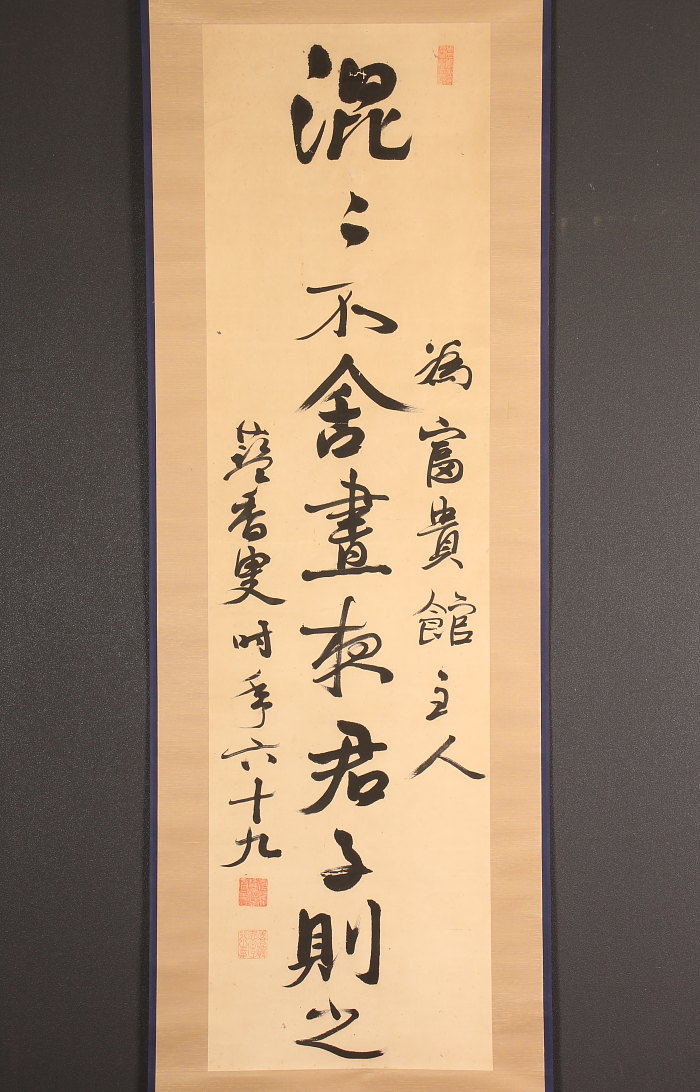 為富貴館主人
混々不舍晝夜君子則之
香叟時年六十九